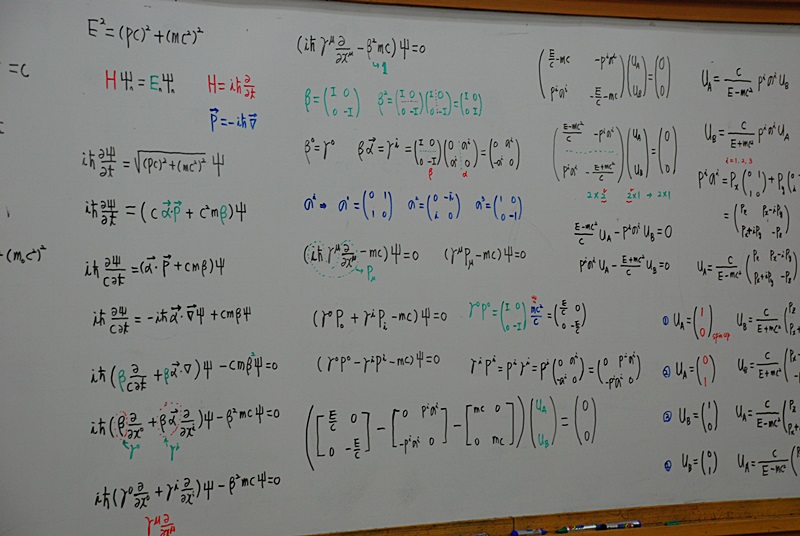 = c
+ (m₀c²)²
E² = (pc)² + (mc²)²
HΨₙ = EₙΨₙ H = iħ ∂/∂t
p⃗ = -iħ∇⃗
iħ ∂Ψ/∂t = √((pc)² + (mc²)²) Ψ
iħ ∂Ψ/∂t = (c α⃗·p⃗ + c²mβ)Ψ
iħ ∂Ψ/c∂t = (α⃗·p⃗ + cmβ)Ψ
iħ ∂Ψ/c∂t = -iħ α⃗·∇⃗Ψ + cmβΨ
iħ(β ∂/c∂t + βα⃗·∇)Ψ - cmβ²Ψ = 0
iħ(β ∂/∂x⁰ + βα⃗ ∂/∂xⁱ)Ψ - β²mcΨ = 0
γ⁰ γⁱ
iħ(γ⁰ ∂/∂x⁰ + γⁱ ∂/∂xⁱ)Ψ - β²mcΨ = 0
γ^μ ∂/∂x^μ
(iħ γ^μ ∂/∂x^μ - β²mc)Ψ = 0
1
β = (I 0; 0 -I) β² = (I 0; 0 -I)(I 0; 0 -I) = (I 0; 0 I)
β⁰ = γ⁰ βα⃗ = γⁱ = (I 0; 0 -I)(0 σⁱ; σⁱ 0) = (0 σⁱ; -σⁱ 0)
β α
σⁱ ⇒ σ¹ = (0 1; 1 0) σ² = (0 -i; i 0) σ³ = (1 0; 0 -1)
(iħ γ^μ ∂/∂x^μ - mc)Ψ = 0 (γ^μ P_μ - mc)Ψ = 0
P_μ
(γ⁰P₀ + γⁱPᵢ - mc)Ψ = 0 γ⁰p⁰ = (I 0; 0 -I) mc²/c = (E/c 0; 0 -E/c)
(γ⁰p⁰ - γⁱpⁱ - mc)Ψ = 0 γⁱpⁱ = pⁱγⁱ = pⁱ(0 σⁱ; -σⁱ 0) = (0 pⁱσⁱ; -pⁱσⁱ 0)
([E/c 0; 0 -E/c] - [0 pⁱσⁱ; -pⁱσⁱ 0] - [mc 0; 0 mc])(U_A; U_B) = (0; 0)
(E/c - mc -pⁱσⁱ; pⁱσⁱ -E/c - mc)(U_A; U_B) = (0; 0)
((E-mc²)/c -pⁱσⁱ; pⁱσⁱ -(E+mc²)/c)(U_A; U_B) = (0; 0)
2×2 2×1 → 2×1
(E-mc²)/c U_A - pⁱσⁱ U_B = 0
pⁱσⁱ U_A - (E+mc²)/c U_B = 0
U_A = c/(E-mc²) pⁱσⁱ U_B
U_B = c/(E+mc²) pⁱσⁱ U_A
i = 1, 2, 3
pⁱσⁱ = Pₓ(0 1; 1 0) + P_y(0
= (P_z Pₓ-iP_y; Pₓ+iP_y -P_z)
U_A = c/(E-mc²) (P_z Pₓ-iP_y; Pₓ+iP_y -P_z)
① U_A = (1; 0) spin up U_B = c/(E+mc²) (P_z
② U_A = (0; 1) U_B = c/(E+mc²)
③ U_B = (1; 0) U_A = c/(E-mc²) (P_z
④ U_B = (0; 1) U_A = c/(E-mc²)